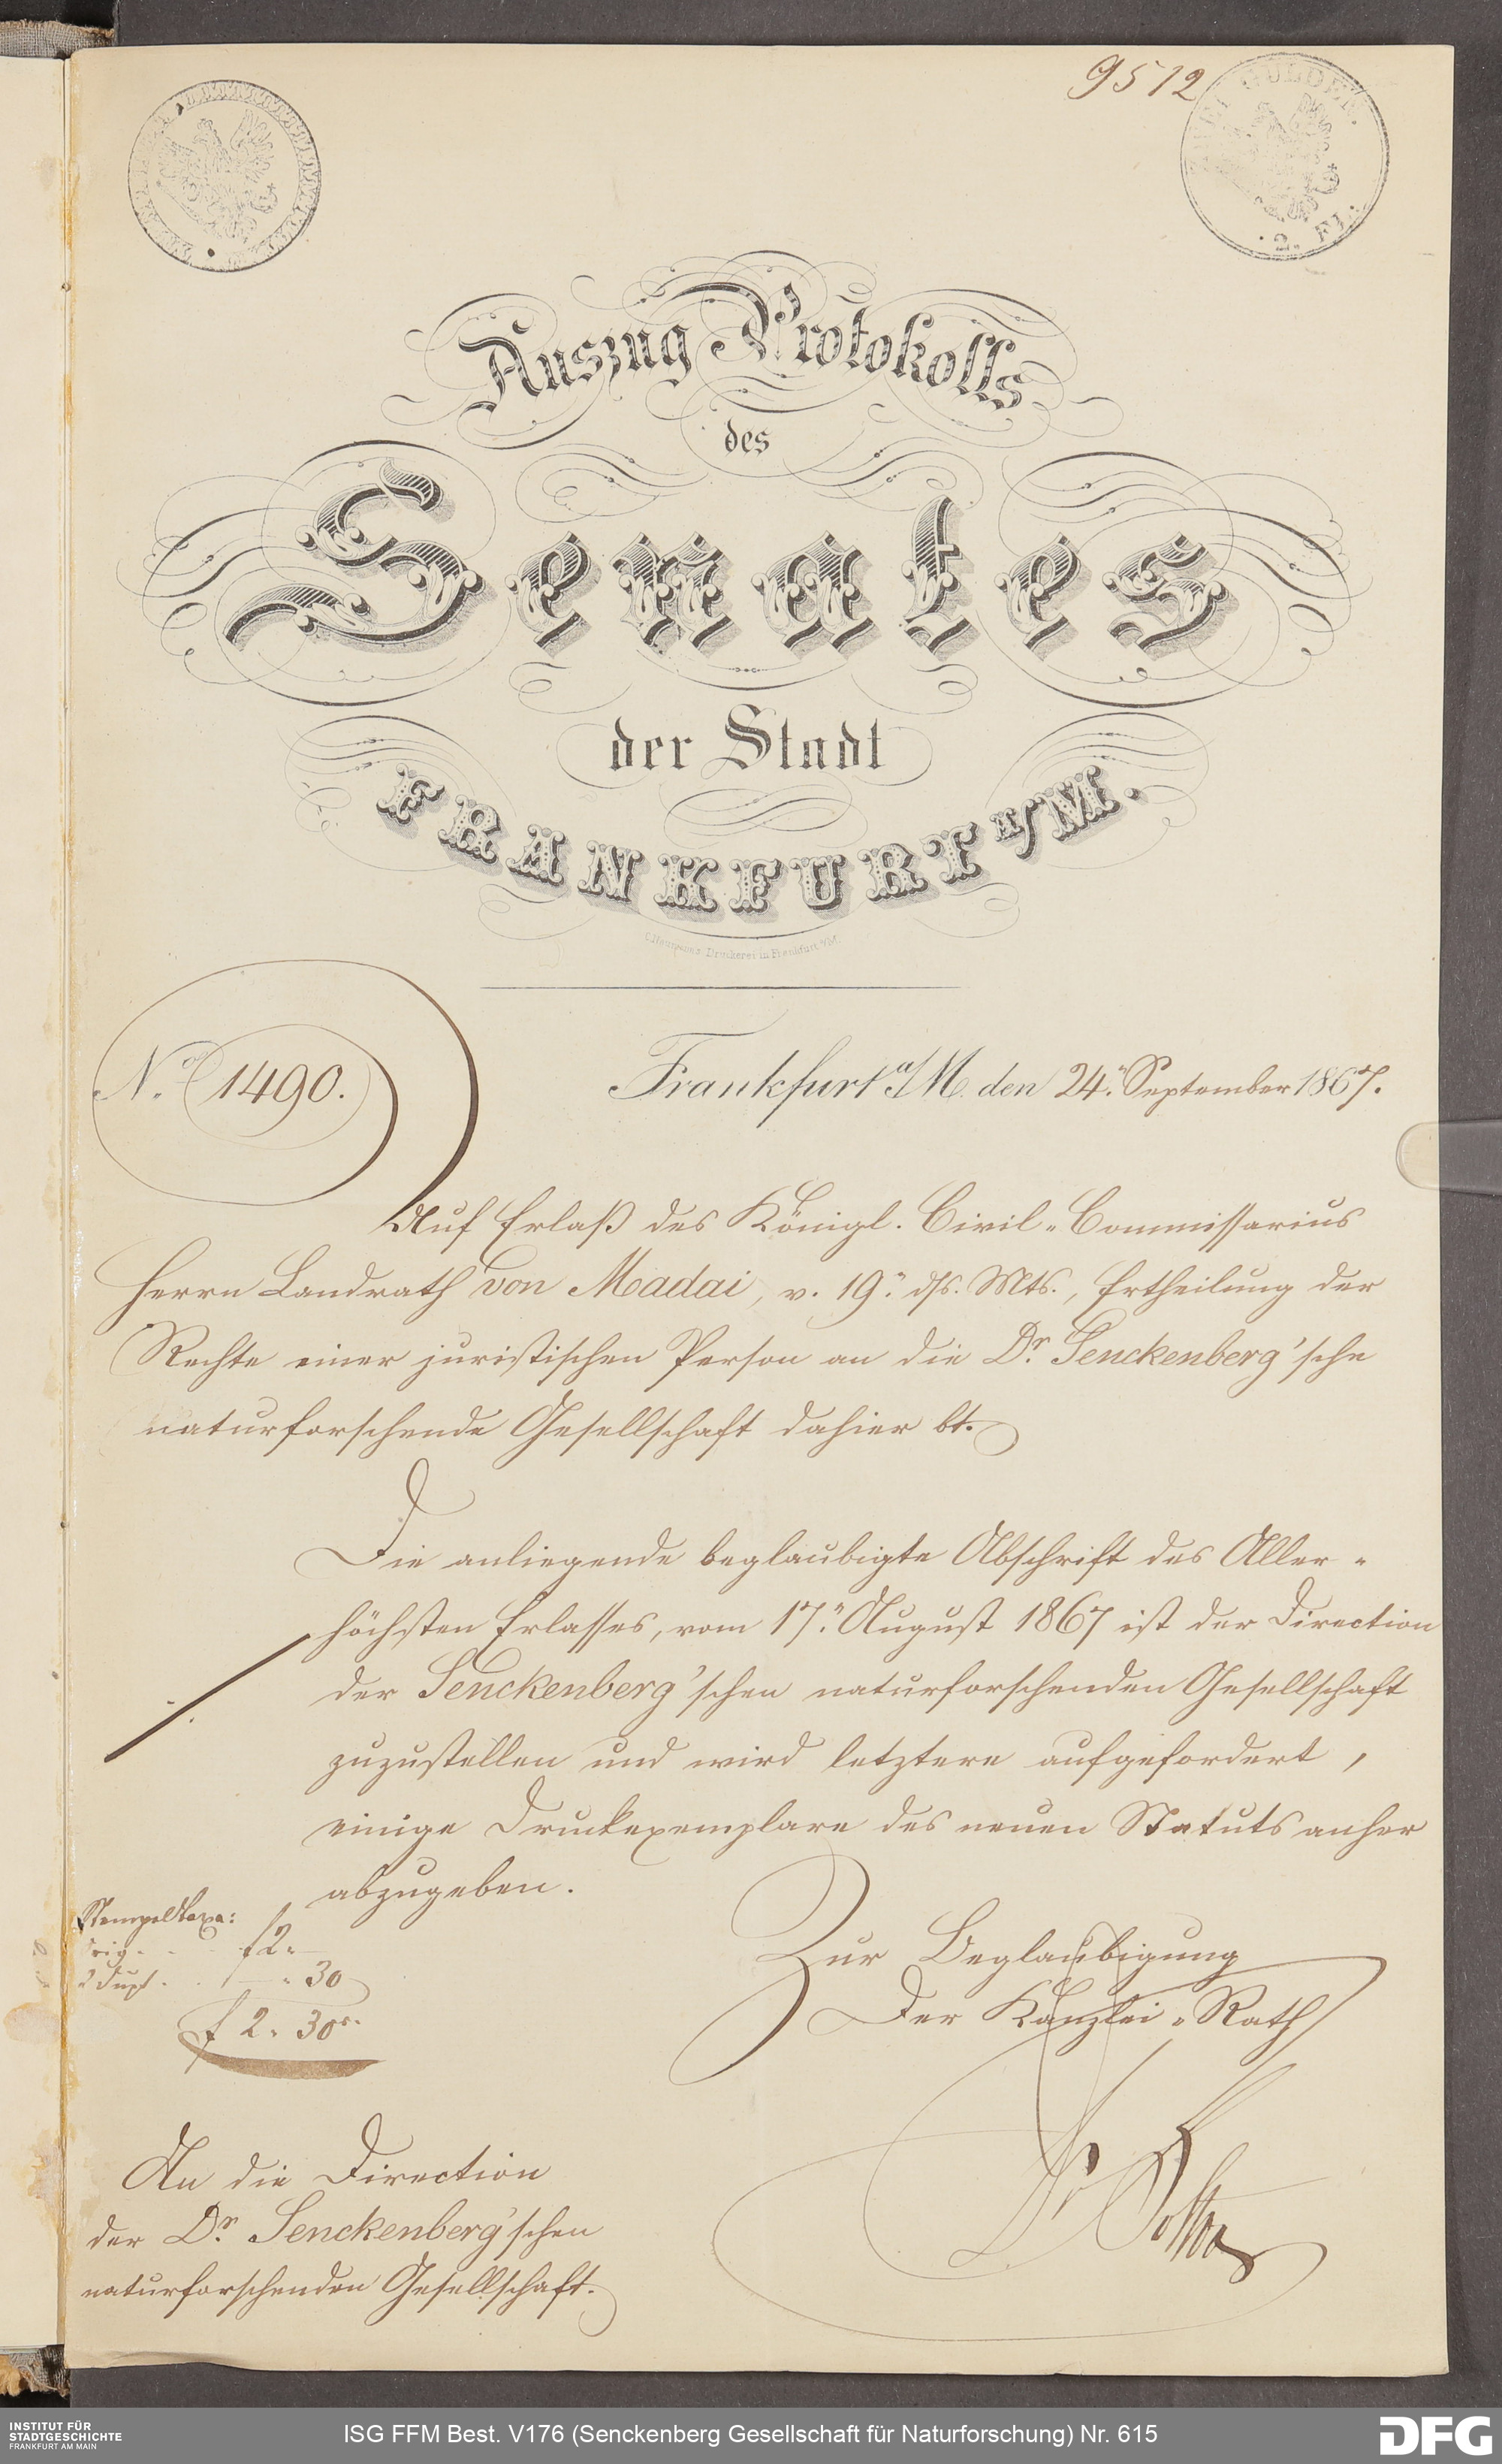 9512
ZWEI GULDEN.
2. Fl.
Auszug Protokolls
des
Senates
der Stadt
FRANKFURT a/M.
Druckerei in Frankfurt a/M.
No. 1490.
Frankfurt a/M. den 24. September 1867.
Auf Erlaß des Königl. Civil-Commissarius
Herrn Landrath von Madai, v. 19. ds. Mts., Ertheilung der
Rechte einer juristischen Person an die Dr. Senckenberg'sche
naturforschende Gesellschaft dahier bt.
Die anliegende beglaubigte Abschrift des Aller-
höchsten Erlasses, vom 17. August 1867 ist der Direction
der Senckenberg'schen naturforschenden Gesellschaft
zuzustellen und wird letztere aufgefordert,
einige Druckexemplare des neuen Statuts anher
abzugeben.
Stempeltaxa:
Orig. f 2.
2 Dupl. 30
f 2. 30 kr.
Zur Beglaubigung
Der Kanzlei-Rath
Dr.
An die Direction
der Dr. Senckenberg'schen
naturforschenden Gesellschaft.
INSTITUT FÜR
STADTGESCHICHTE
FRANKFURT AM MAIN
ISG FFM Best. V176 (Senckenberg Gesellschaft für Naturforschung) Nr. 615
DFG